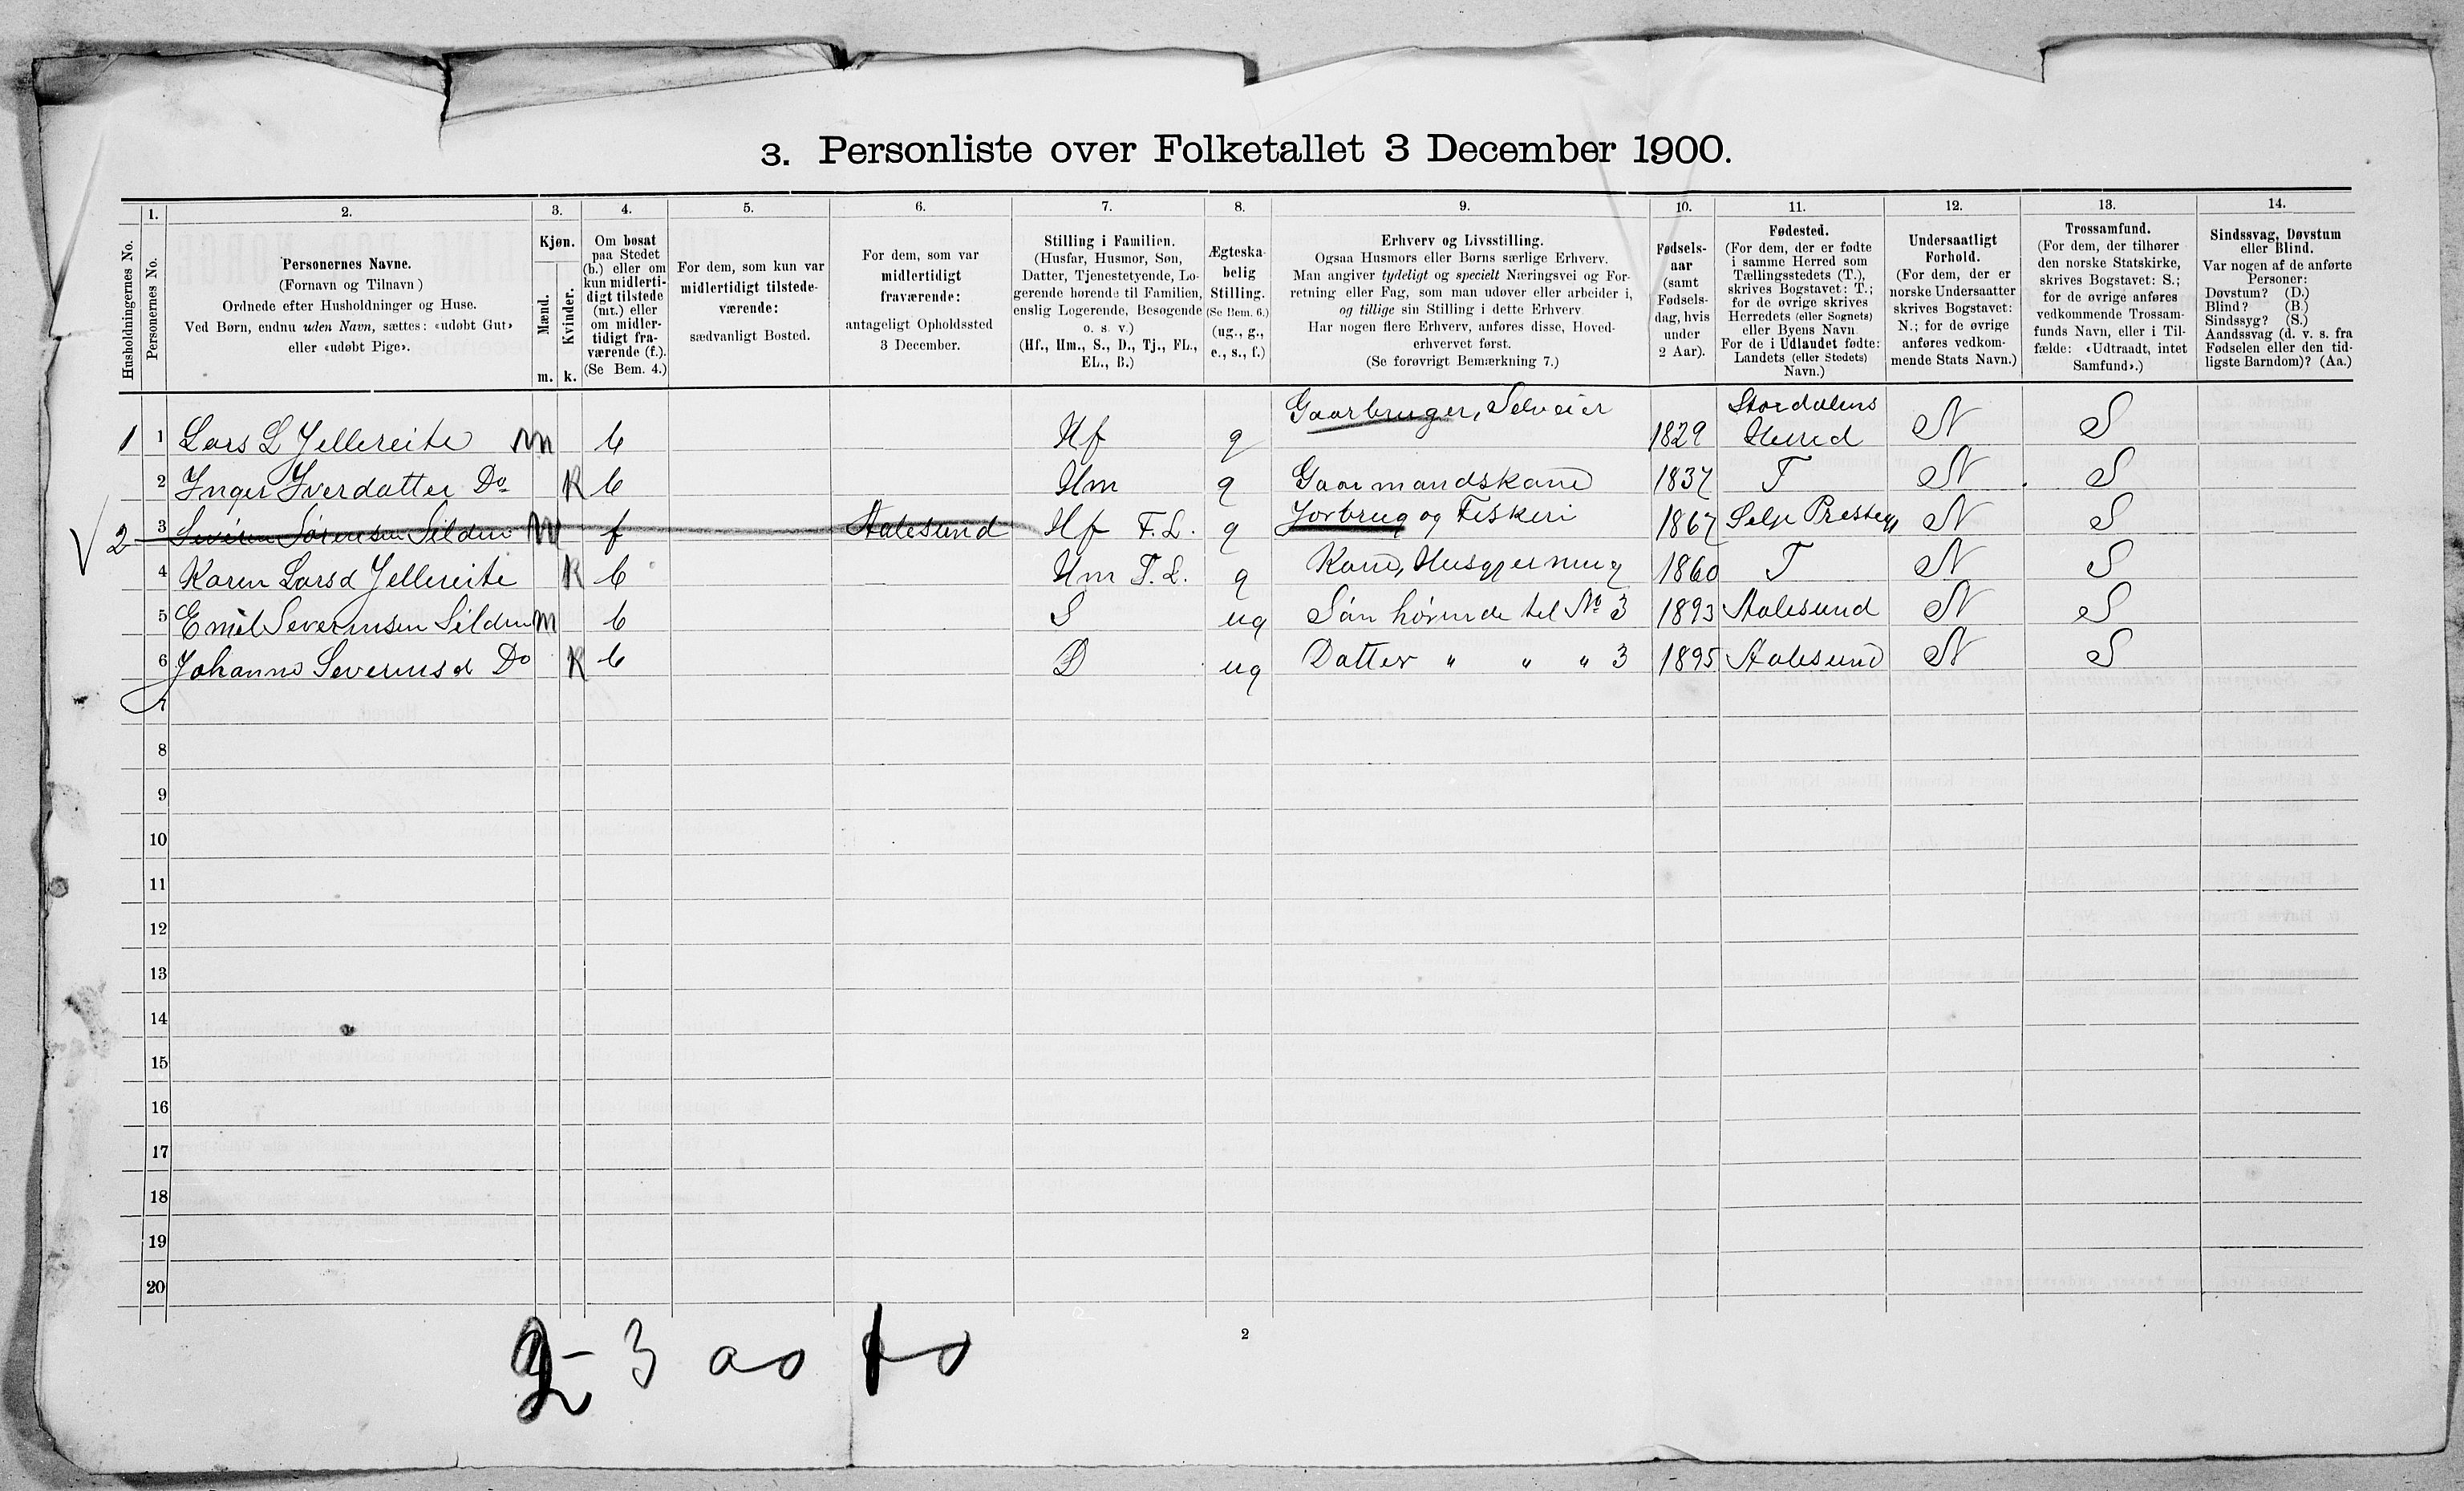 3. Personliste over Folketallet 3 December 1900.
Husholdningernes No.
1.
Personernes No.
2.
Personernes Navne.
(Fornavn og Tilnavn)
Ordnede efter Husholdninger og Huse.
Ved Børn, endnu uden Navn, sættes: «udøbt Gut»
eller «udøbt Pige».
3.
Kjøn.
Mænd.
Kvinder.
m. k.
4.
Om bosat
paa Stedet
(b.) eller om
kun midlerti-
digt tilstede
(mt.) eller
om midler-
tidigt fra-
værende (f.).
(Se Bem. 4.)
5.
For dem, som kun var
midlertidigt tilstede-
værende:
sædvanligt Bosted.
6.
For dem, som var
midlertidigt
fraværende:
antageligt Opholdssted
3 December.
7.
Stilling i Familien.
(Husfar, Husmor, Søn,
Datter, Tjenestetyende, Lo-
gerende hørende til Familien,
enslig Logerende, Besøgende
o. s. v.)
(Hf., Hm., S., D., Tj., FL.,
EL., B.)
8.
Ægteska-
belig
Stilling.
(Se Bem. 6.)
(ug., g.,
e., s., f.)
9.
Erhverv og Livsstilling.
Ogsaa Husmors eller Børns særlige Erhverv.
Man angiver tydeligt og specielt Næringsvei og For-
retning eller Fag, som man udøver eller arbeider i,
og tillige sin Stilling i dette Erhverv.
Har nogen flere Erhverv, anføres disse, Hoved-
erhvervet først.
(Se forøvrigt Bemærkning 7.)
10.
Fødsels-
aar
(samt
Fødsels-
dag, hvis
under
2 Aar).
11.
Fødested.
(For dem, der er fødte
i samme Herred som
Tællingsstedets (T.),
skrives Bogstavet: T.;
for de øvrige skrives
Herredets (eller Sognets)
eller Byens Navn.
For de i Udlandet fødte:
Landets (eller Stedets)
Navn.)
12.
Undersaatligt
Forhold.
(For dem, der er
norske Undersaatter
skrives Bogstavet:
N.; for de øvrige
anføres vedkom-
mende Stats Navn.)
13.
Trossamfund.
(For dem, der tilhører
den norske Statskirke,
skrives Bogstavet: S.;
for de øvrige anføres
vedkommende Trossam-
funds Navn, eller i Til-
fælde: «Udtraadt, intet
Samfund».)
14.
Sindssvag, Døvstum
eller Blind.
Var nogen af de anførte
Personer:
Døvstum? (D.)
Blind? (B.)
Sindssyg? (S.)
Aandssvag (d. v. s. fra
Fødselen eller den tid-
ligste Barndom)? (Aa.)
1 1 Lars L Yttereite m b Hf g Gaarbruger, Selveier 1829 Stordalens Herred N S
2 Inger Iverdatter Do k b Hm g Gaarmandskone 1837 T N S
2 3 Severin Sørensen Sildin m f Aalesund Hf F.L. g Jorbrug og Fiskeri 1867 Selje Presteg N S
4 Karen Larsd Yttereite k b Hm F.L. g Kone, Husgjerning 1860 T N S
5 Emil Severinsen Sildin m b S ug Sön hörende til No 3 1893 Aalesund N S
6 Johanne Severinsd Do k b D ug Datter " " " 3 1895 Aalesund N S
7
8
9
10
11
12
13
14
15
16
17
18
19
20
2
2 - 3